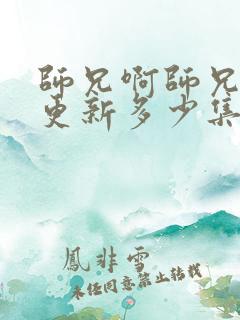 師兄啊師兄
更新多少集
鳳非雪
未经同意禁止转载